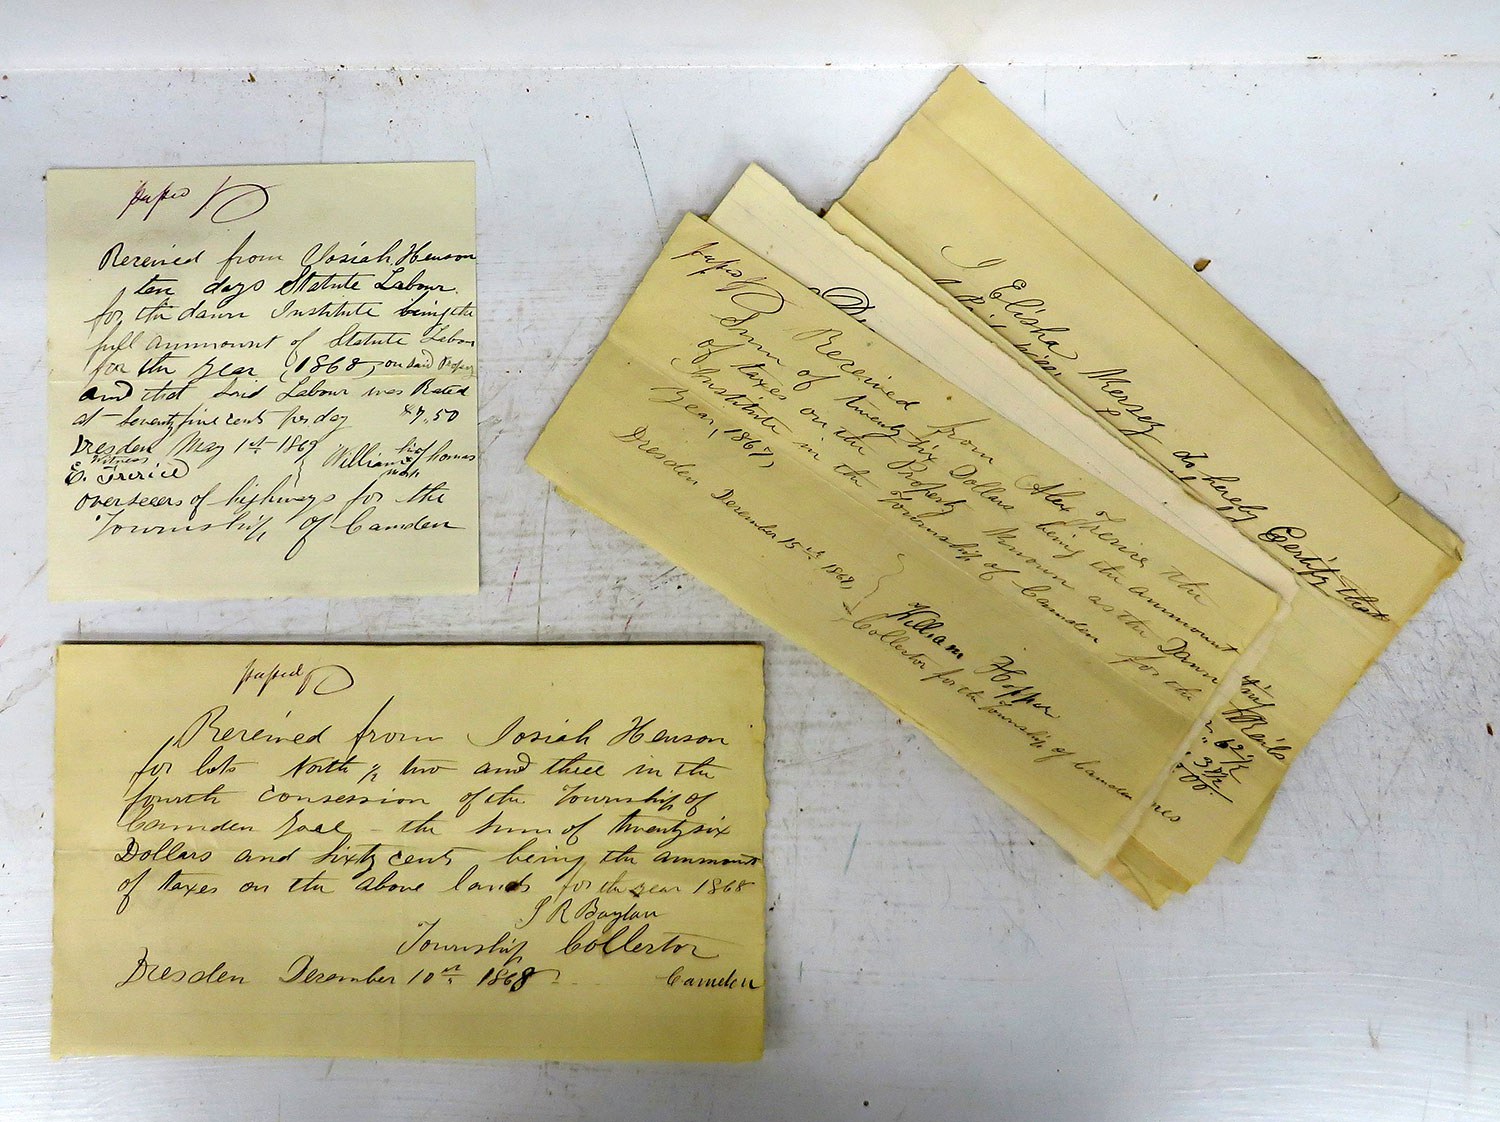 Received from Josiah Henson
ten days Statute Labour
for the dawn Institute being the
full ammount of Statute Labou
for the year (1868, on said Proper
and that said Labour was Rated
at seventy five cents per day $7,50
Dresden May 1st 1869 William his Thomas
Witness mark
E.
overseers of highways for the
Township of Camden
Received from Josiah Henson
for lots North ½ two and three in the
fourth consession of the Township of
Camden Gore - the sum of twenty six
Dollars and sixty cents being the ammount
of taxes on the above lands for the year 1868
Township Collector
Dresden December 10th 1868 Camden
Received from Alex the
Sum of twenty six Dollars being the ammount
of taxes on the Property known as the Dawn
Institute in the Township of Camden for the
Year, 1867,
Dresden December 15th 1868,
William Hopper
Collector for the Township of Camden
I Elisha Mersey do hereby Certify that
62½